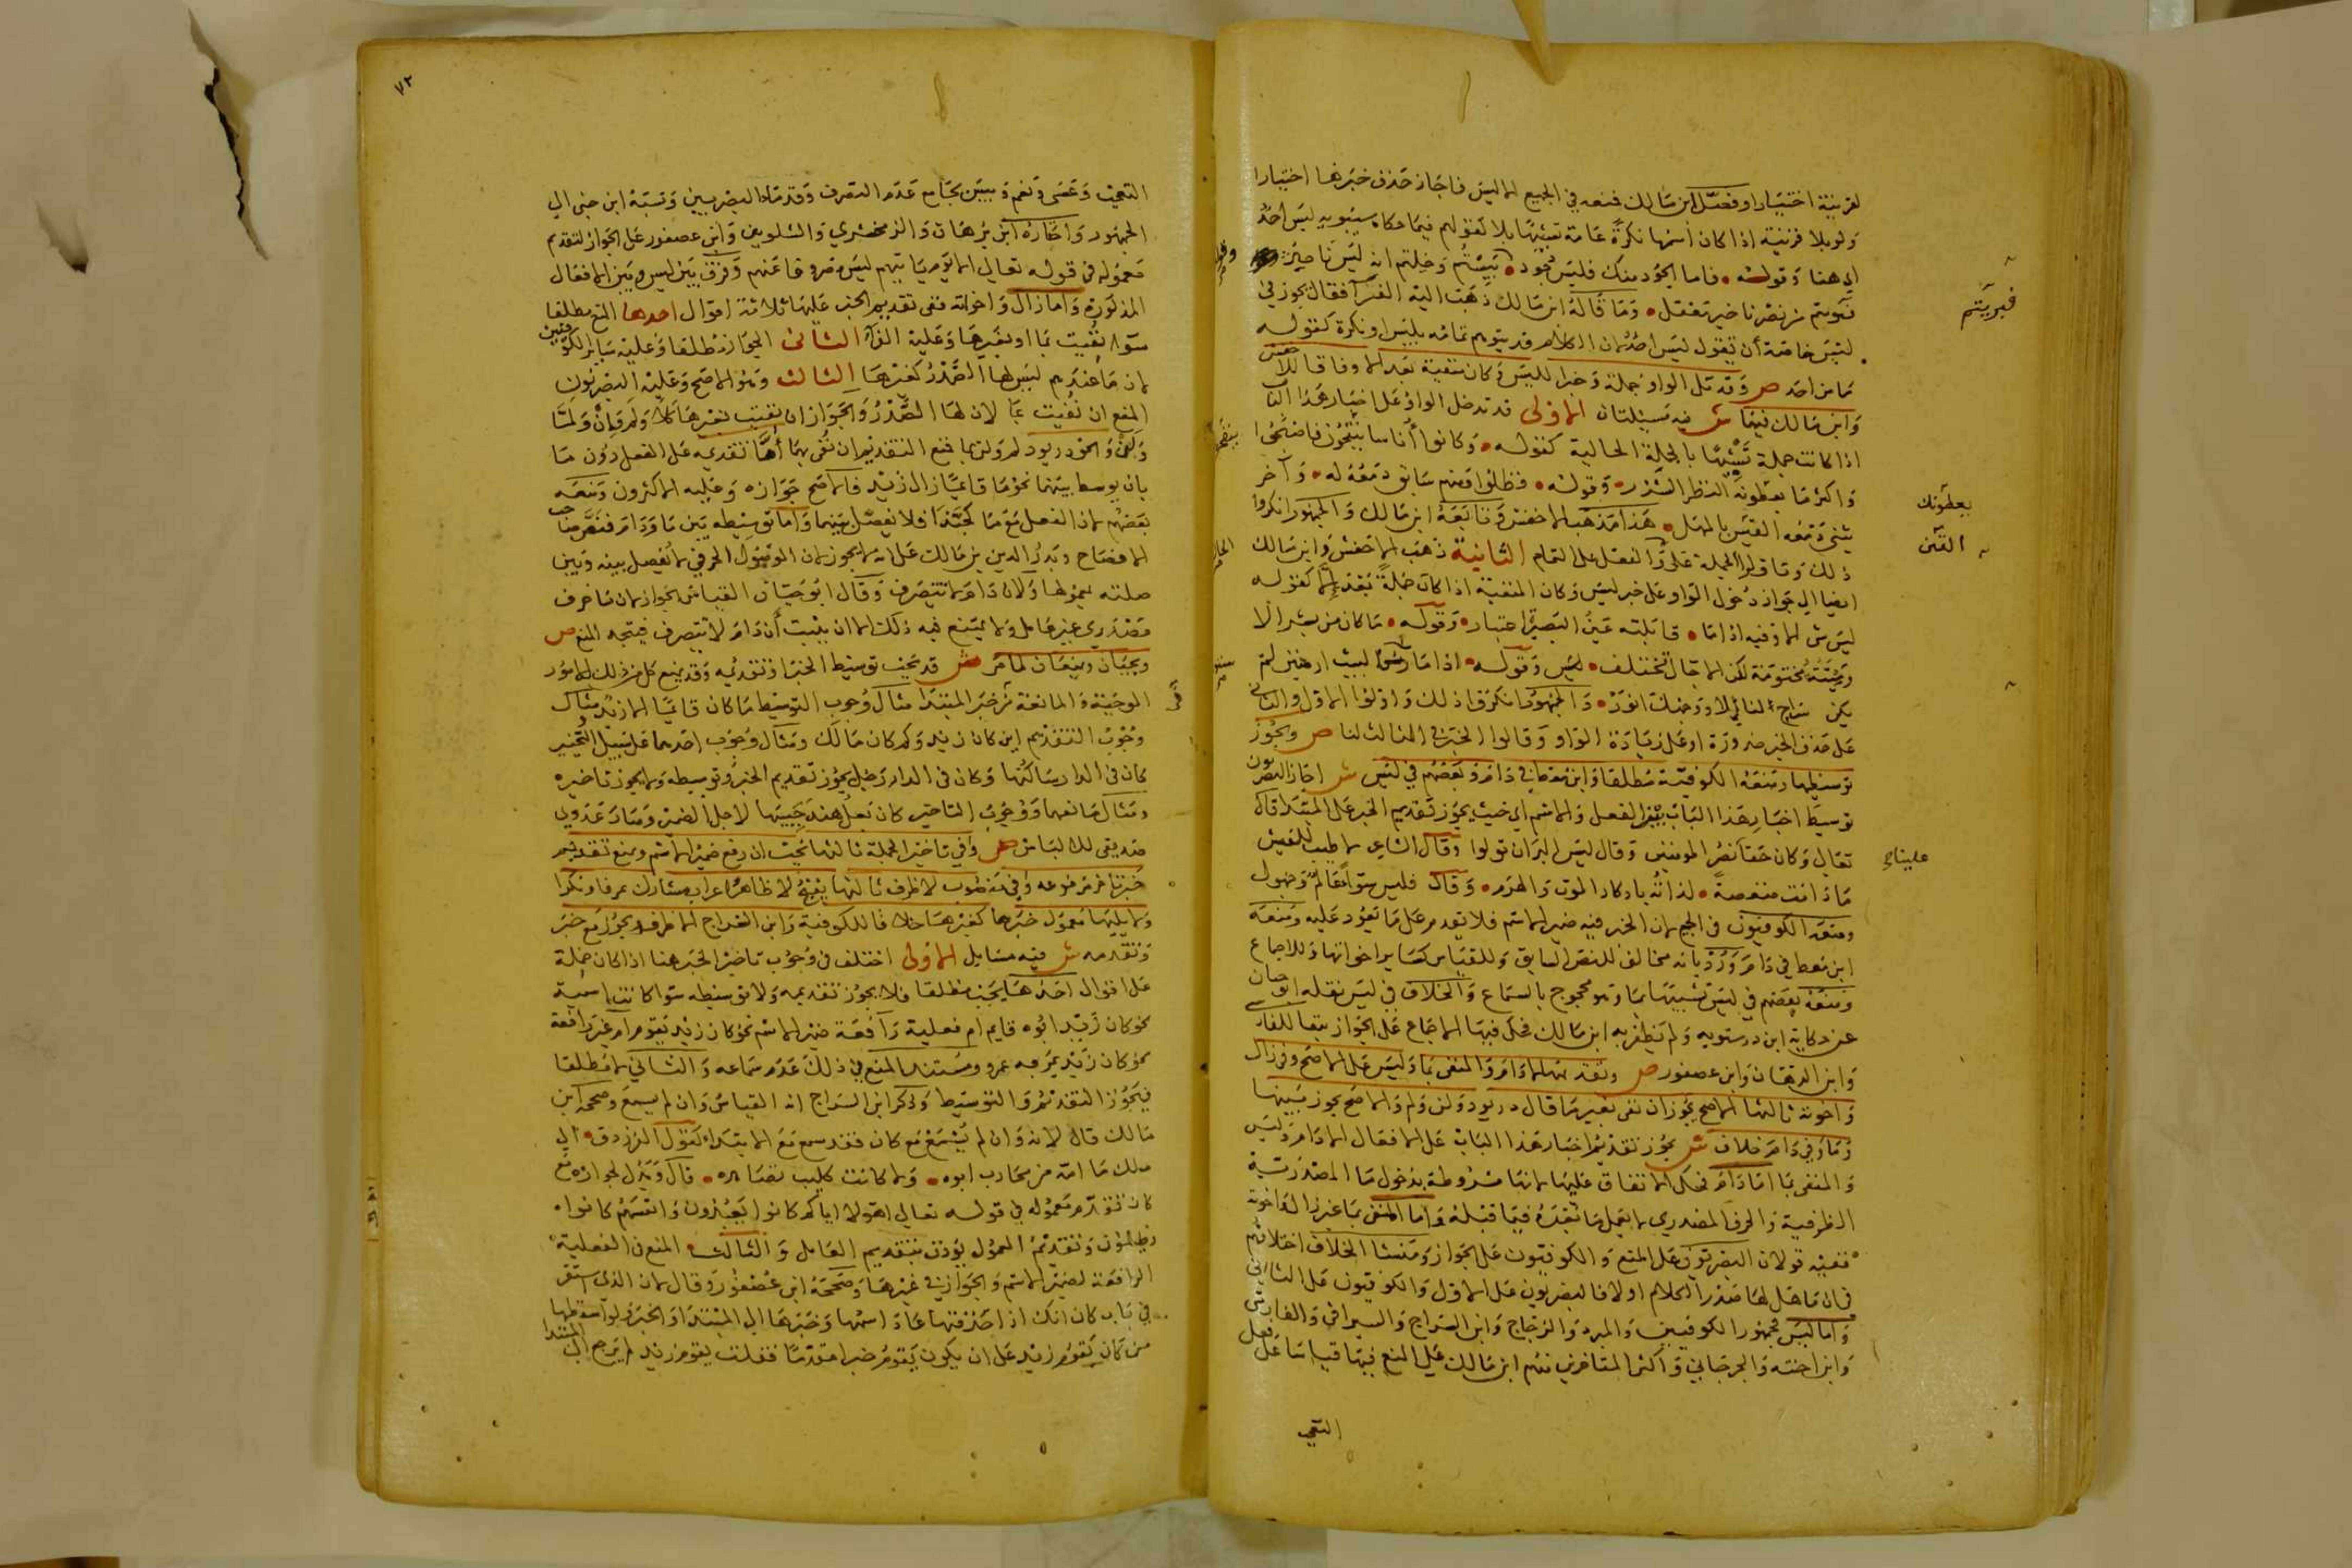 لقرينة اختيارا وفصل ابن مالك فمنعه في الجميع الا ليس فاجاز حذف خبرها اختيارا
ولو بلا قرينة اذا كان اسمها نكرة عامة تشبيها بلا كقولهم فيما حكاه سيبويه ليس احد
اي هنا وقوله فاما الجود منك فليس جود
من نصرنا خير معقل وما قاله ابن مالك ذهب اليه الفرا فقال يجوز في
ليس خاصة ان تقول ليس احد لان الكلام قد يتوهم تمامه بليس ونكرة كقوله
ما من احد ص وقد تلي الواو جملة وخبرا لليس وكان منفية بعد الا وفاقا للاخفش
وابن مالك فيهما ش فيه مسئلتان الاولى قد تدخل الواو على اخبار هذا الباب
اذا كانت جملة تشبيها بالجملة الحالية كقوله وكانوا اناسا ينفحون فاضحوا
واكثر ما يعطونه النظر الشزر وقوله فظلوا ومنهم سابق دمعه له وآخر
يثني دمعه العين بالمهل هذا مذهب الاخفش وتابعه ابن مالك والجمهور انكروا
ذلك وتاولوا الجملة على الفعل على التمام الثانية ذهب الاخفش وابن مالك
ايضا الى جواز دخول الواو على خبر ليس وكان المنفية اذا كان جملة بعد الا كقوله
ليس شي الا وفيه اذا ما قابلته عين البصير اعتبار وقوله ما كان من بشر الا
وميتته محتومة لكن الاجال تختلف وقوله اذا ما
على حذف الخبر ضرورة او على زيادة الواو وقالوا الخبر في الثالث لنا ص ويجوز
توسيطها ومنعه الكوفية مطلقا وابن معط في دام وبعضهم في ليس ش اجاز البصريون
توسيط اخبار هذا الباب بين الفعل والاسم اي حيث يجوز تقديم الخبر على المبتدا قال
تعالى وكان حقا علينا نصر المومنين وقال ليس البر ان تولوا وقال الشاعر لا طيب للعيش
ما دامت منغصة لذاته بادكار الموت والهرم وقال فليس سواء عالم وجهول
ومنعه الكوفيون في الجميع لان الخبر فيه ضمير الاسم فلا يتقدم على ما يعود عليه ومنعه
ابن معط في دام ورد بانه مخالف للنص السابق وللقياس كسائر اخواتها وللاجماع
ومنعه بعضهم في ليس تشبيها بما وهو محجوج بالسماع والخلاف في ليس نقله ابو حيان
عن حكاية ابن درستويه ولم يظفر به ابن مالك فحكى فيها الاجماع على الجواز تبعا للفارسي
وابن الدهان وابن عصفور ص وتقديمها الا دام والمنفي بما وليس على الاصح وفي زال
واخوته ثالثها الاصح يجوز ان نفي بغير ما قال دريود ولن ولم والاصح يجوز بينها
وما وفي دام خلاف ش يجوز تقديم اخبار هذا الباب على الافعال الا دام وليس
والمنفي بما اما دام فحكى الاتفاق عليها لانها مشروطة بدخول ما المصدرية
الظرفية والحرف المصدري لا يعمل ما بعده فيما قبله واما المنفي بما غير زال واخوته
ففيه قولان البصريون على المنع والكوفيون على الجواز ومنشا الخلاف اختلافهم
في ان ما هل لها صدر الكلام اولا فالبصريون على الاول والكوفيون على الثاني
واما ليس فجمهور الكوفيين والمبرد والزجاج وابن السراج والسيرافي والفارسي
وابن اخته والجرجاني واكثر المتاخرين منهم ابن مالك على المنع فيها قياسا على فعل
علينا
يعطونك
العين
التعجب
٧٢
التعجب وعسى ونعم وبيس بجامع عدم التصرف وقدما البصريين ونسبه ابن جني الى
الجمهور واختاره ابن برهان والزمخشري والشلوبين وابن عصفور على الجواز لتقديم
معموله في قوله تعالى الا يوم ياتيهم ليس مصروفا عنهم وفرق بين ليس وبين الافعال
المذكورة واما زال واخواته ففي تقديم الخبر عليها ثلاثة اقوال احدها المنع مطلقا
سوا نفيت بما او بغيرها وعليه الفرا الثاني الجواز مطلقا وعليه ساير الكوفيين
لان ما عندهم ليس لها الصدر كغيرها الثالث وهو الاصح وعليه البصريون
المنع ان نفيت بما لان لها الصدر والجواز ان نفيت بغيرها كلا ولم وان ولما
ولن والحق دريود لم ولن بما فمنع التقديم ان نفي بهما اما تقديمه على الفعل دون ما
بان يوسط بينهما نحو ما قائما زال زيد فالاصح جوازه وعليه الاكثرون ومنعه
بعضهم لان الفعل مع ما كحبذا فلا يفصل بينهما واما توسيطه بين ما ودام فنص صاحب
الافصاح وبدر الدين بن مالك على انه لا يجوز لان الموصول الحرفي لا يفصل بينه وبين
صلته بمعمولها ولان دام لا تتصرف وقال ابو حيان القياس الجواز لان ما حرف
مصدري غير عامل ولا يمتنع فيه ذلك الا ان يثبت ان دام لا تتصرف فيتجه المنع ص
ويجبان ويمنعان لما مر ش قد يجب توسيط الخبر او تقديمه وقد يمنع كل من ذلك لامور
الموجبة والمانعة في خبر المبتدا مثال وجوب التوسيط ما كان قائما الا زيد ومثال
وجوب التقديم اين كان زيد وكم كان مالك ومثال وجوب احدهما على سبيل التخيير
كان في الدار ساكنها وكان في الدار رجل يجوز تقديم الخبر وتوسيطه ولا يجوز تاخيره
ومثال مانعهما ووجوب التاخير كان بعل هند حبيبها لاجل الضمير وما زاد عدوي
صديقي للالباس ص وفي تاخير الجملة ثالثها يجب ان رفع ضمير الاسم ويمنع تقديم
خبر تاخر مرفوعه وفي منصوب لا ظرف ثالثها يقبح لا ظاهرا عراب مشارك عرفا ونكرا
ولا يليها معمول خبرها كغيرها خلافا للكوفية وابن السراج الا ظرف ويجوز مع خبر
وتقدمه ش فيه مسايل الاولى اختلف في وجوب تاخير الخبر هنا اذا كان جملة
على اقوال احدها يجب مطلقا فلا يجوز تقديمه ولا توسيطه سوا كانت اسمية
نحو كان زيد ابوه قايم ام فعلية رافعة ضمير الاسم نحو كان زيد يقوم ام غير رافعة
نحو كان زيد يمر به عمرو ومستند المنع في ذلك عدم سماعه والثاني لا مطلقا
فيجوز التقديم والتوسيط وذكر ابن السراج انه القياس وان لم يسمع وصححه ابن
مالك قال لانه وان لم يسمع مع كان فقد سمع مع الابتداء كقول الفرزدق الى
ملك ما امه من محارب ابوه ولا كانت كليب تصاهره قال ويدل لجوازه مع
كان تقدم معموله في قوله تعالى اهولا اياكم كانوا يعبدون وانفسهم كانوا
يظلمون وتقديم المعمول يوذن بتقديم العامل والثالث المنع في الفعلية
الرافعة لضمير الاسم والجواز في غيرها وصححه ابن عصفور وقال لان الذي استقر
في باب كان انك اذا حذفتها عاد اسمها وخبرها الى المبتدا والخبر ولو اسقطها
من كان يقوم زيد على ان يكون يقوم خبرا مقدما فقلت يقوم زيد لم يرجع الى المبتدا